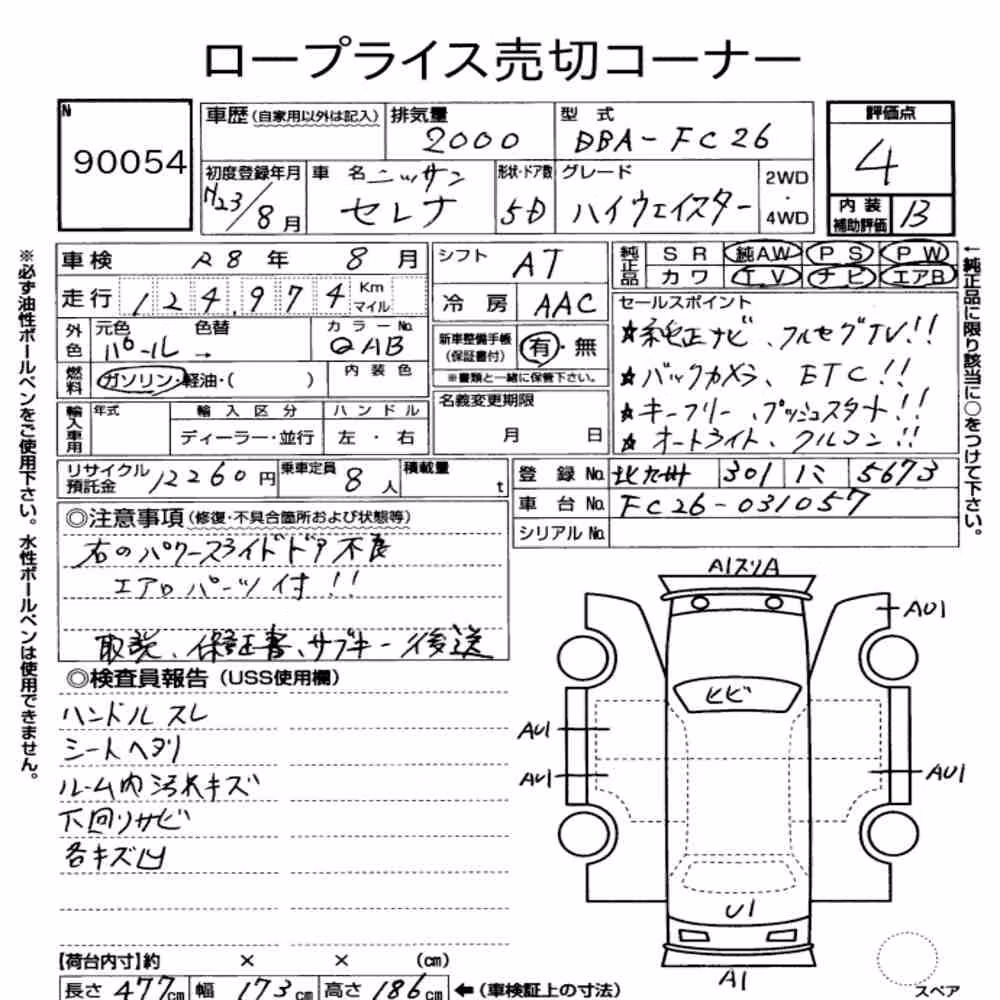 ロープライス売切コーナー
N
90054
車歴(自家用以外は記入)
排気量
2000
型式
DBA-FC26
評価点
4
初度登録年月
H23/8月
車名 ニッサン
セレナ
形状・ドア数
5D
グレード
ハイウェイスター
2WD
・
4WD
内装
補助評価
B
車検 R8年 8月
走行 124,974 Km
マイル
外色
元色 色替
パール →
カラーNo.
QAB
燃料
ガソリン・軽油・( )
内装色
輸入車用
年式
輸入区分
ディーラー・並行
ハンドル
左・右
シフト AT
冷房 AAC
新車整備手帳
(保証書付)
有・無
※書類と一緒に保管下さい。
名義変更期限
月 日
純正品
SR 純AW PS PW
カワ TV ナビ エアB
セールスポイント
★純正ナビ、フルセグTV!!
★バックカメラ、ETC!!
★キーフリー、プッシュスタート!!
★オートライト、クルコン!!
リサイクル
預託金
12260円
乗車定員
8人
積載量
t
登録No. 北九州 301 ミ 5673
車台No. FC26-031057
シリアルNo.
◎注意事項(修復・不具合箇所および状態等)
右のパワースライドドア不良
エアロパーツ付!!
取説、保証書、サブキー後送
◎検査員報告(USS使用欄)
ハンドルスレ
シートヘタリ
ルーム内汚れキズ
下回りサビ
各キズ凹
A1スリA
AU1
ヒビ
AU1
AU1
AU1
U1
A1
スペア
【荷台内寸】約 × × (cm)
長さ 477cm 幅 173cm 高さ 186cm ←(車検証上の寸法)
※必ず油性ボールペンをご使用下さい。水性ボールペンは使用できません。
←純正品に限り該当に○をつけて下さい。